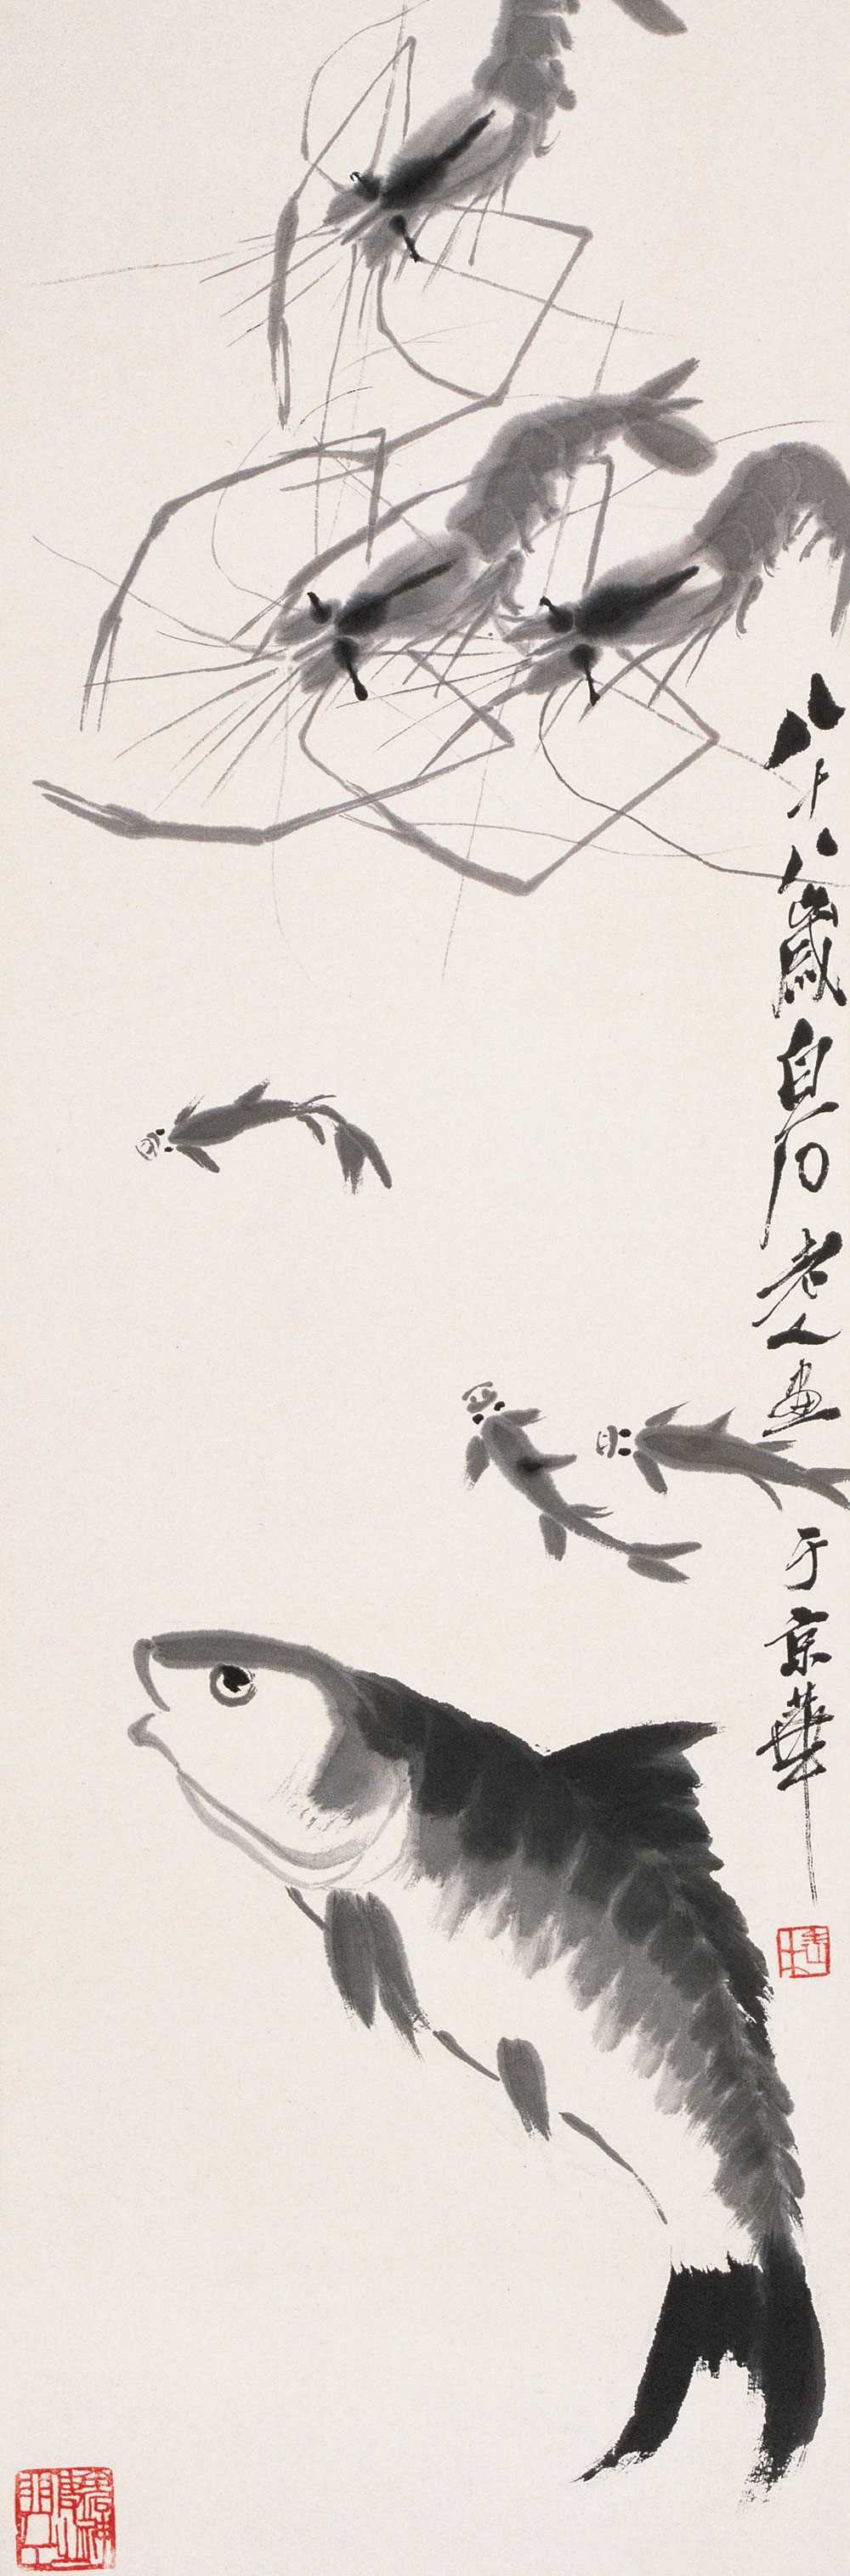 八十八歲白石老人畫于京華